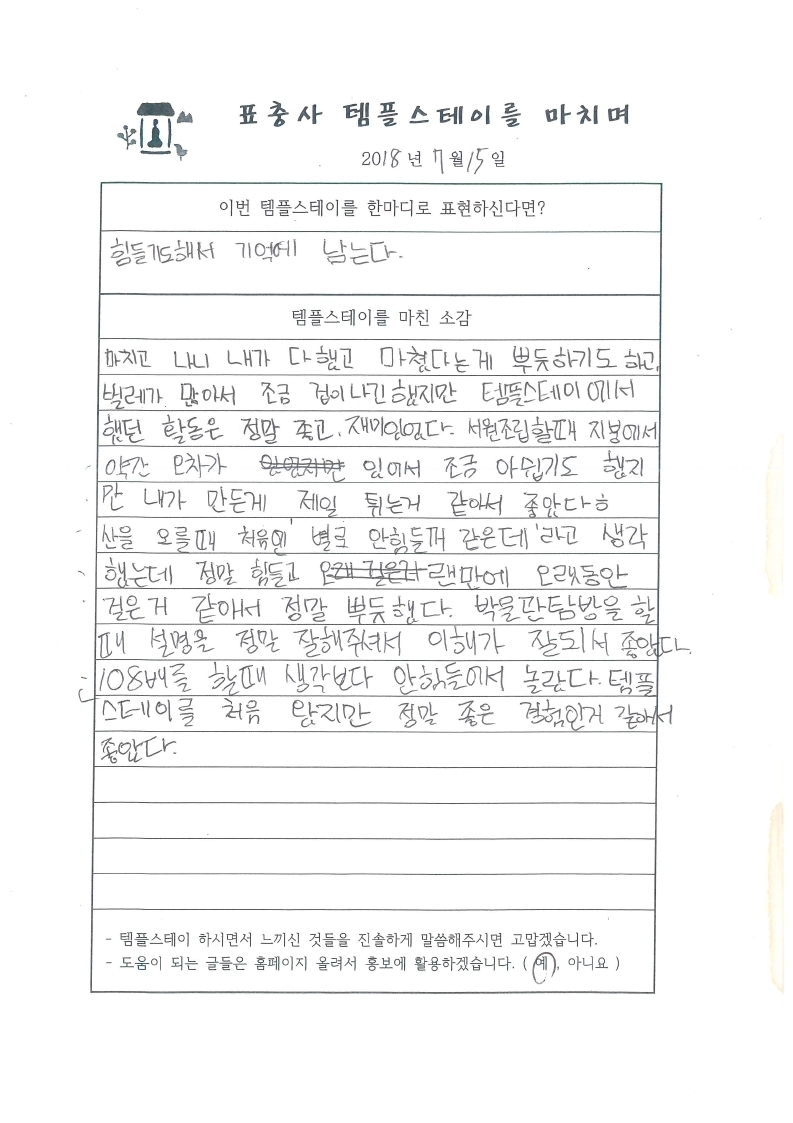 표충사 템플스테이를 마치며
2018 년 7월 15일
이번 템플스테이를 한마디로 표현하신다면?
힘들기도해서 기억에 남는다.
템플스테이를 마친 소감
마치고 나니 내가 다 했고 마쳤다는게 뿌듯하기도 하고,
벌레가 많아서 조금 겁이나긴 했지만 템플스테이에서
했던 활동은 정말 좋고, 재미있었다. 서원조립할때 지붕에서
약간 오차가 있어서 조금 아쉽기도 했지
만 내가 만든게 제일 튀는거 같아서 좋았다ㅎ
산을 오를때 처음엔 '별로 안힘들꺼 같은데'라고 생각
했는데 정말 힘들고 랜만에 오랫동안
걸은거 같아서 정말 뿌듯했다. 박물관탐방을 할
때 설명을 정말 잘해주셔서 이해가 잘되서 좋았다.
108배를 할때 생각보다 안힘들어서 놀랐다. 템플
스테이를 처음 왔지만 정말 좋은 경험인거 같아서
좋았다.
- 템플스테이 하시면서 느끼신 것들을 진솔하게 말씀해주시면 고맙겠습니다.
- 도움이 되는 글들은 홈페이지 올려서 홍보에 활용하겠습니다. ( 예, 아니요 )